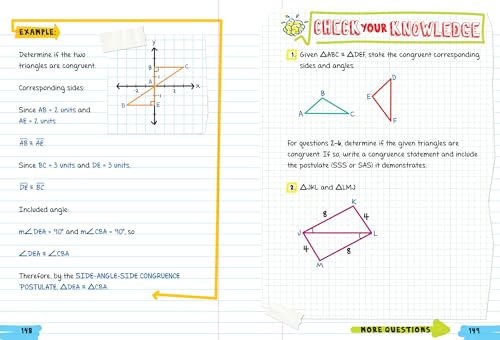 EXAMPLE:
Determine if the two
triangles are congruent.
Corresponding sides:
Since AB = 2 units and
AE = 2 units
AB ≅ AE
Since BC = 3 units and DE = 3 units,
DE ≅ BC
Included angle:
m∠DEA = 90° and m∠CBA = 90°, so
∠DEA ≅ ∠CBA
Therefore, by the SIDE-ANGLE-SIDE CONGRUENCE
POSTULATE, △DEA ≅ △CBA.
y
B
C
A
x
D
E
148
CHECK YOUR KNOWLEDGE
1. Given △ABC ≅ △DEF, state the congruent corresponding
sides and angles.
A
B
C
D
E
F
For questions 2-6, determine if the given triangles are
congruent. If so, write a congruence statement and include
the postulate (SSS or SAS) it demonstrates.
2. △JKL and △LMJ
K
8
4
J
L
4
8
M
MORE QUESTIONS
149